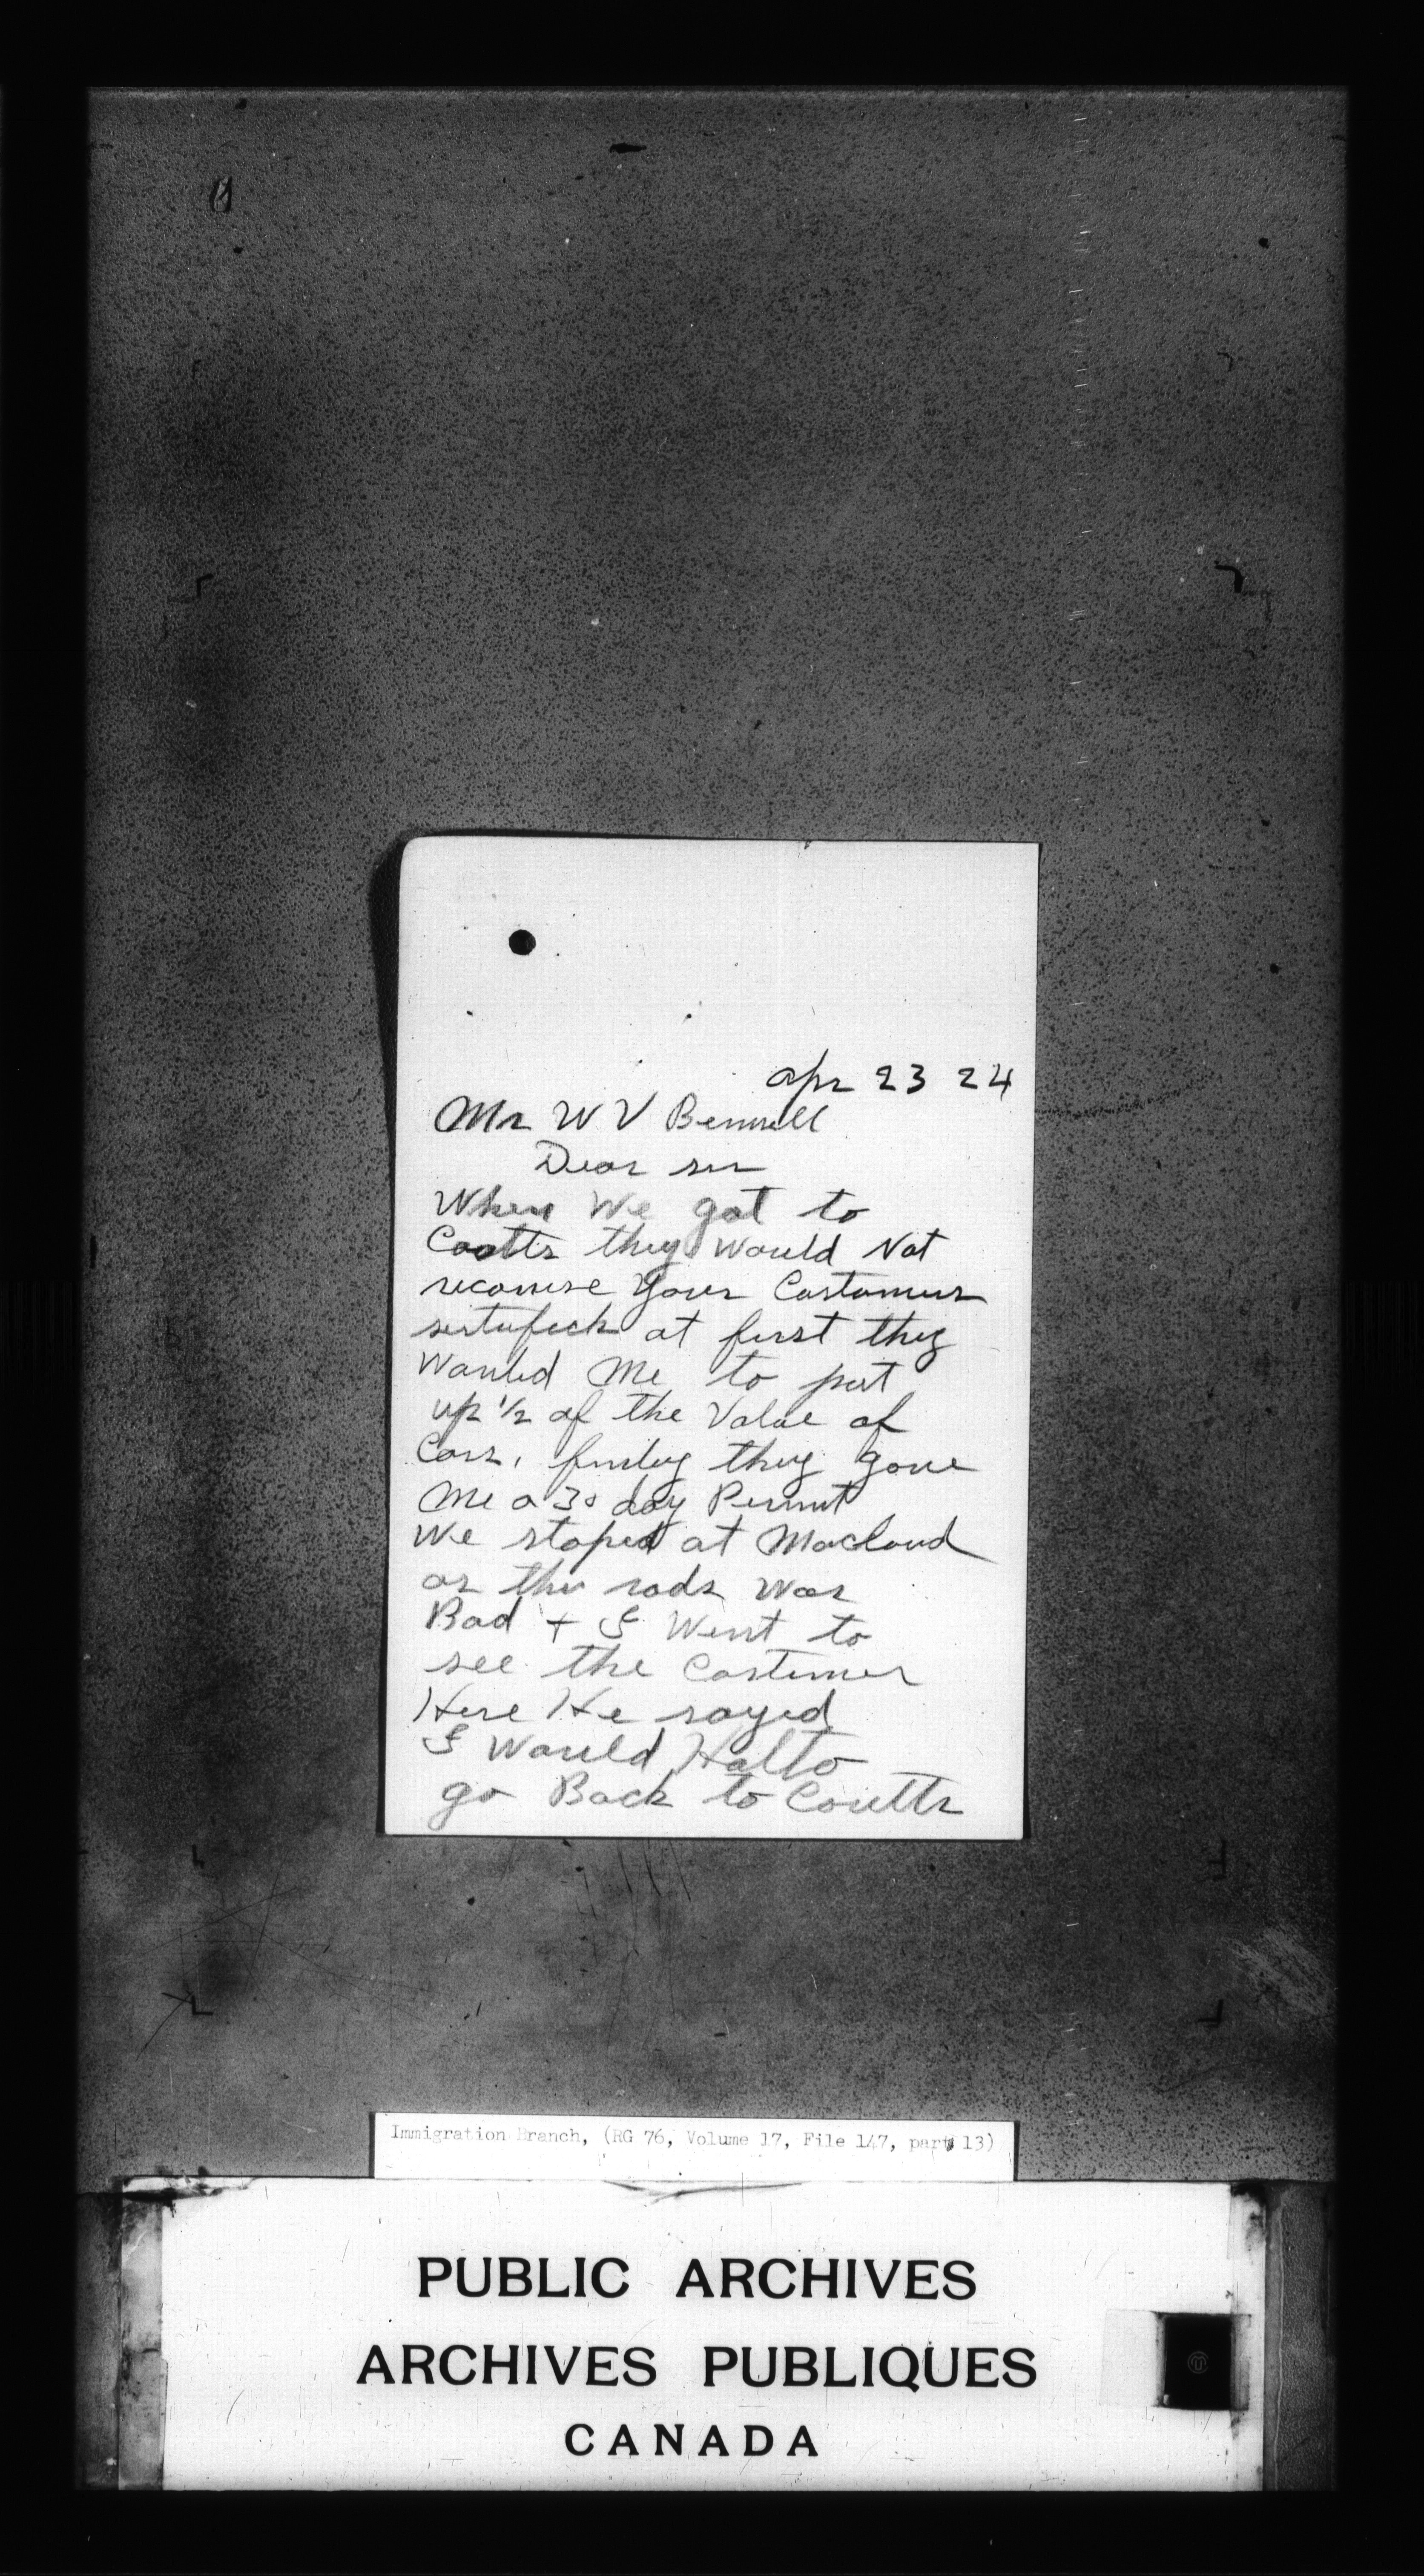 Apr 23 24
Mr W V Bennett
Dear sir
When We got to
Coutts they Would Not
reconise your Costumes
sertufeck at first they
Wanted Me to put
up 1/2 of the Value of
Cars, finley they gove
Me a 30 day Permit
We stoped at Macloud
as the rods Was
Bad + I Went to
see the Costumer
Here He sayed
I Would Hafto
go Back to Coutts
Immigration Branch, (RG 76, Volume 17, File 147, part 13)
PUBLIC ARCHIVES
ARCHIVES PUBLIQUES
CANADA